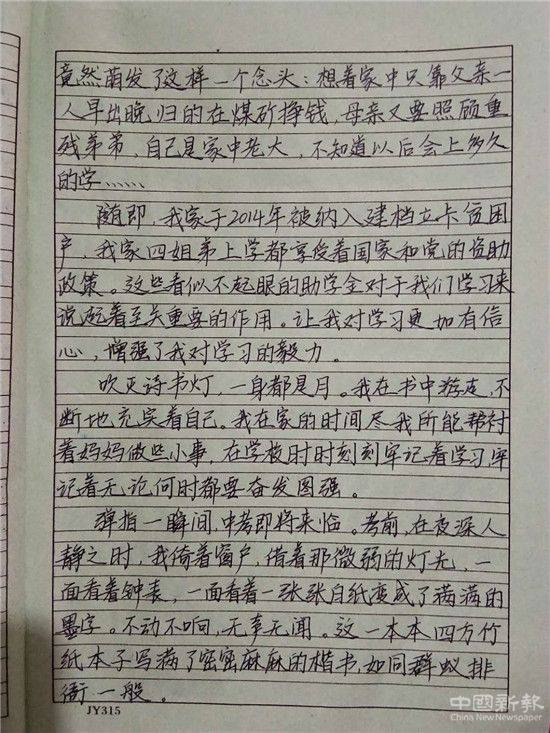 竟然萌发了这样一个念头：想着家中只靠父亲一
人早出晚归的在煤矿挣钱，母亲又要照顾重
残弟弟，自己是家中老大，不知道以后会上多久
的学……
随即，我家于2014年被纳入建档立卡贫困
户，我家四姐弟上学都享受着国家和党的资助
政策。这些看似不起眼的助学金对于我们学习来
说起着至关重要的作用。让我对学习更加有信
心，增强了我对学习的毅力。
吹灭诗书灯，一身都是月。我在书中游走，不
断地充实着自己。我在家的时间尽我所能帮衬
着妈妈做些小事，在学校时时刻刻牢记着学习，牢
记着无论何时都要奋发图强。
弹指一瞬间，中考即将来临。考前，在夜深人
静之时，我倚着窗户，借着那微弱的灯光，一
面看着钟表，一面看着一张张白纸变成了满满的
墨字。不动不响，无事无闻。这一本本四方竹
纸本子写满了密密麻麻的楷书，如同群蚁排
衙一般。
JY315
中國新報
China New Newspaper